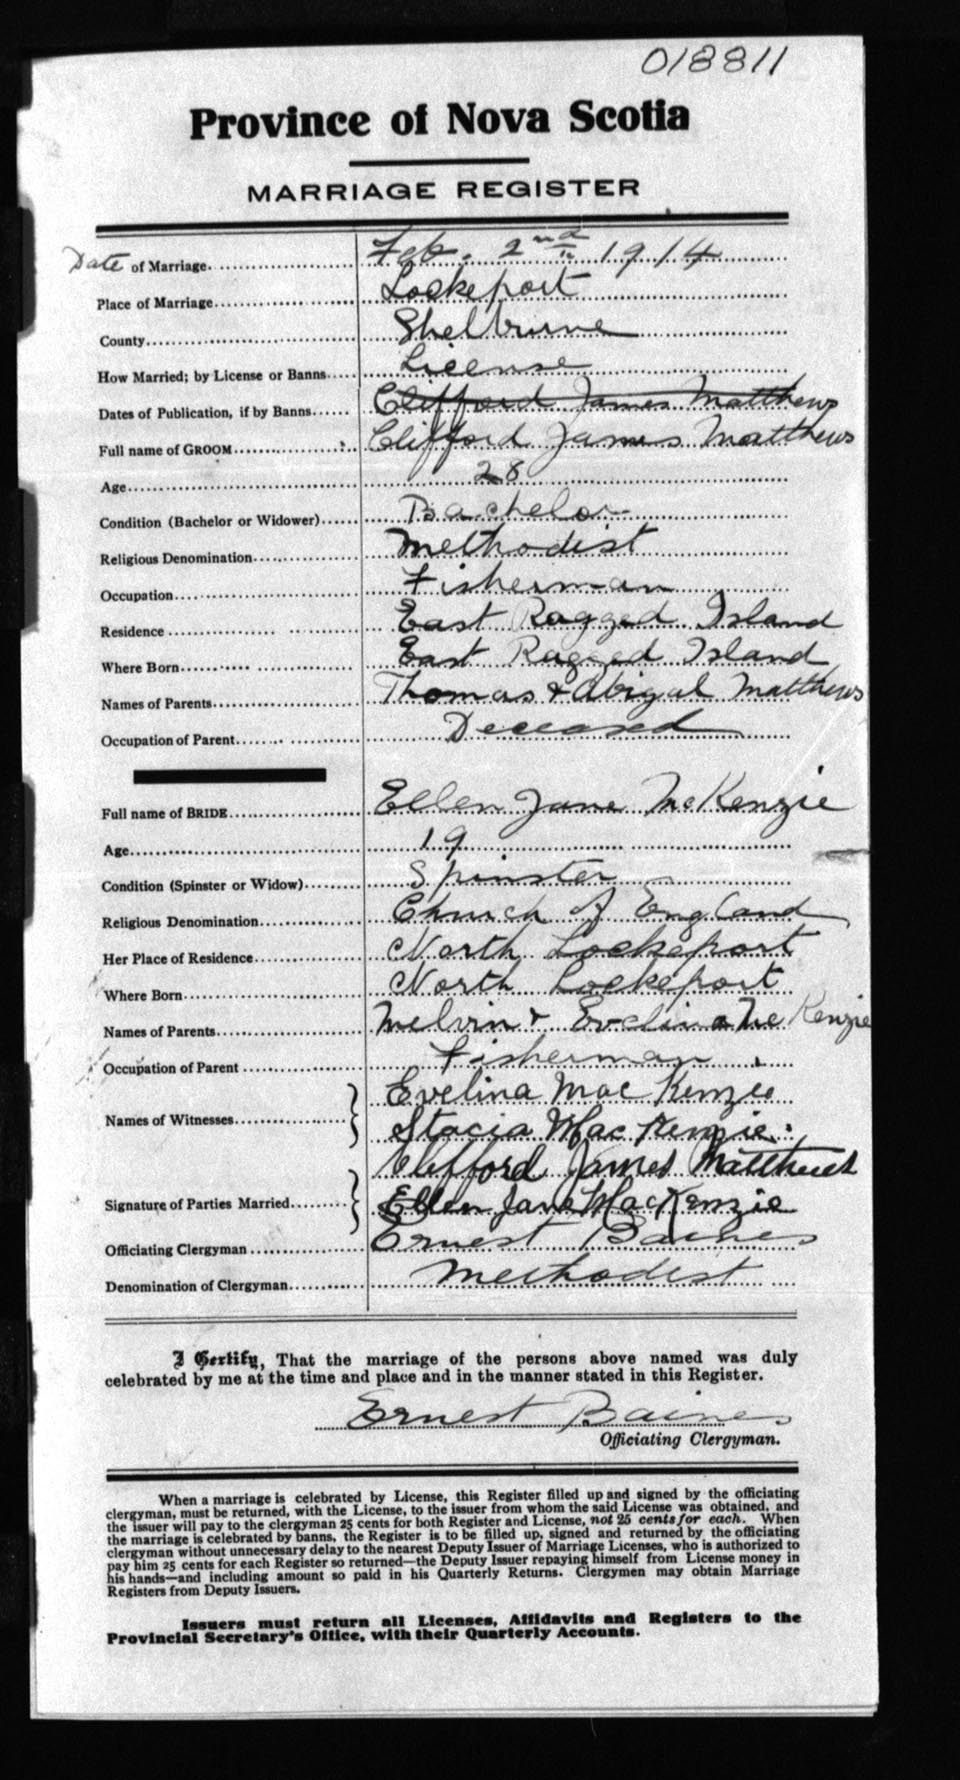 018811
Province of Nova Scotia
MARRIAGE REGISTER
Date of Marriage Feb. 2nd 1914
Place of Marriage Lockeport
County Shelburne
How Married; by License or Banns License
Dates of Publication, if by Banns Clifford James Matthews
Full name of GROOM Clifford James Matthews
Age 28
Condition (Bachelor or Widower) Bachelor
Religious Denomination Methodist
Occupation Fisherman
Residence East Ragged Island
Where Born East Ragged Island
Names of Parents Thomas & Abigal Matthews
Occupation of Parent Deceased
Full name of BRIDE Ellen Jane McKenzie
Age 19
Condition (Spinster or Widow) Spinster
Religious Denomination Church of England
Her Place of Residence North Lockeport
Where Born North Lockeport
Names of Parents Melvin & Evelina Mc Kenzie
Occupation of Parent Fisherman
Evelina Mac Kenzie
Names of Witnesses
Stacia Mac Kenzie
Clifford James Matthews
Signature of Parties Married Ellen Jane MacKenzie
Officiating Clergyman Ernest Baines
Denomination of Clergyman Methodist
I Certify, That the marriage of the persons above named was duly
celebrated by me at the time and place and in the manner stated in this Register.
Ernest Baines
Officiating Clergyman.
When a marriage is celebrated by License, this Register filled up and signed by the officiating
clergyman, must be returned, with the License, to the issuer from whom the said License was obtained, and
the issuer will pay to the clergyman 25 cents for both Register and License, not 25 cents for each. When
the marriage is celebrated by banns, the Register is to be filled up, signed and returned by the officiating
clergyman without unnecessary delay to the nearest Deputy Issuer of Marriage Licenses, who is authorized to
pay him 25 cents for each Register so returned—the Deputy Issuer repaying himself from License money in
his hands—and including amount so paid in his Quarterly Returns. Clergymen may obtain Marriage
Registers from Deputy Issuers.
Issuers must return all Licenses, Affidavits and Registers to the
Provincial Secretary's Office, with their Quarterly Accounts.